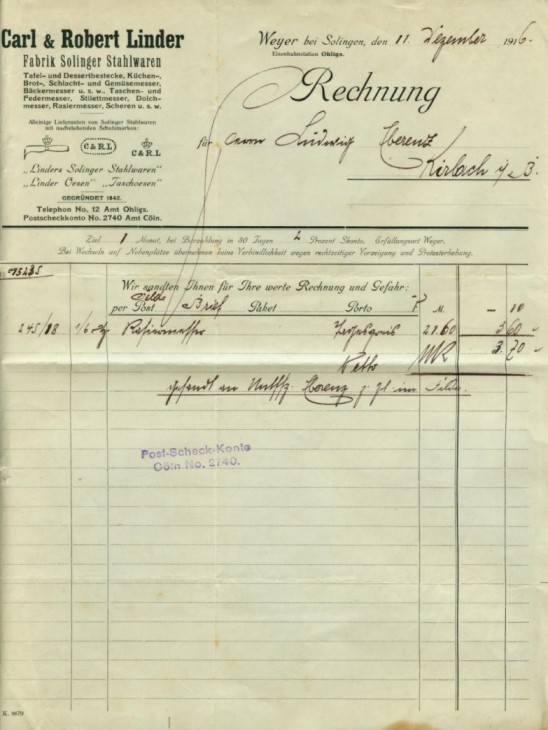 Carl & Robert Linder
Fabrik Solinger Stahlwaren
Tafel- und Dessertbestecke, Küchen-,
Brot-, Schlacht- und Gemüsemesser,
Bäckermesser u. s. w., Taschen- und
Federmesser, Stilettmesser, Dolch-
messer, Rasiermesser, Scheren u. s. w.
Alleinige Lieferanten von Solinger Stahlwaren
mit nachstehenden Schutzmarken:
C&R.L
C&R.L.
"Linders Solinger Stahlwaren"
"Linder Oesen" "Taschoesen"
GEGRÜNDET 1842.
Telephon No. 12 Amt Ohligs.
Postscheckkonto No. 2740 Amt Cöln.
Weyer bei Solingen, den 11. Dezember 1916.
Eisenbahnstation Ohligs.
Rechnung
für Herrn Ludwig
Kirlach
Ziel 1 Monat, bei Barzahlung in 30 Tagen 2 Prozent Skonto, Erfüllungsort Weyer.
Bei Wechseln auf Nebenplätze übernehmen keine Verbindlichkeit wegen rechtzeitiger Vorzeigung und Protesterhebung.
Wir sandten Ihnen für Ihre werte Rechnung und Gefahr:
per Post Brief Paket Porto M. – 10
245/18 1/6 Rasiermesser 21.60 3.60
Netto MK 3.70
gesandt an im Felde.
Post-Scheck-Konto
Cöln No. 2740.
K. 8679